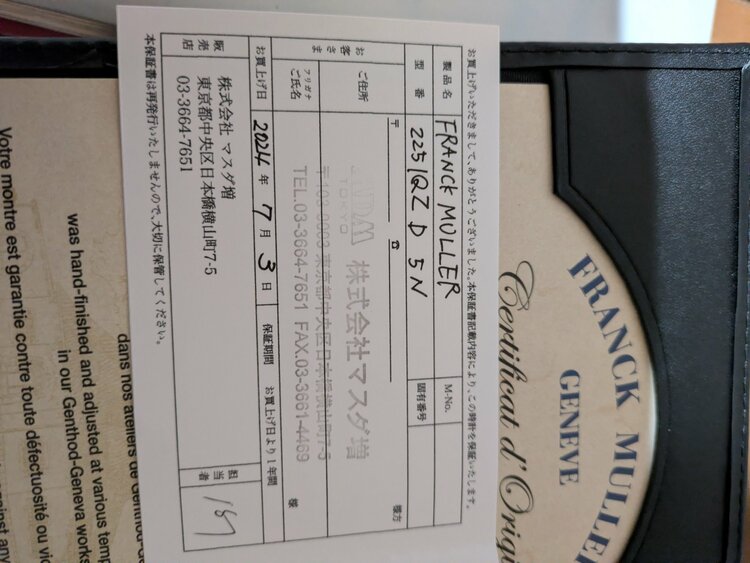 お買上げいただきまして、ありがとうございました。本保証書記載内容により、この時計を保証いたします。
製品名 FRANCK MULLER M-No.
型番 2251QZ D 5N 固有番号
お客さま
ご住所 〒 ☎ 様方
TOKYO 株式会社マスダ増
〒103-0003 東京都中央区日本橋横山町7-5
TEL.03-3664-7651 FAX.03-3661-4469
フリガナ
ご氏名 様
お買上げ日 2024年 7月 3日 保証期間 お買上げ日より1年間
販売店 株式会社 マスダ増
東京都中央区日本橋横山町7-5
03-3664-7651
担当者
本保証書は再発行いたしませんので、大切に保管してください。
FRANCK MULLER
GENEVE
Certificat d'Origi
dans nos ateliers de Genthod-
was hand-finished and adjusted at various temp
in our Genthod-Geneva works
Votre montre est garantie contre toute défectuosité ou vi
against any